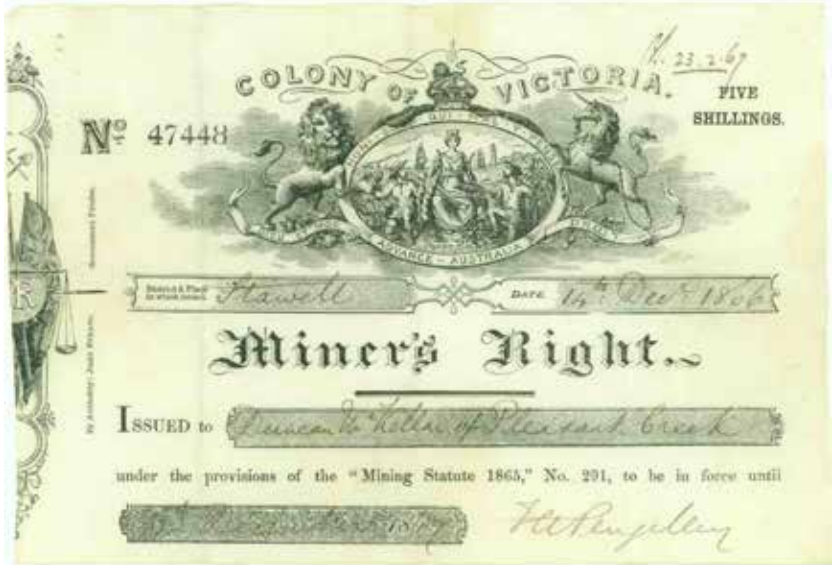 23.2.67
COLONY OF VICTORIA.
FIVE
SHILLINGS.
No 47448
ADVANCE – AUSTRALIA
District & Place
in which issued. Stawell
DATE 14th Decr 1866
Miner's Right.
ISSUED to Duncan McKellar of Pleasant Creek
under the provisions of the "Mining Statute 1865," No. 291, to be in force until
1867
By Authority: John Ferres, Government Printer.